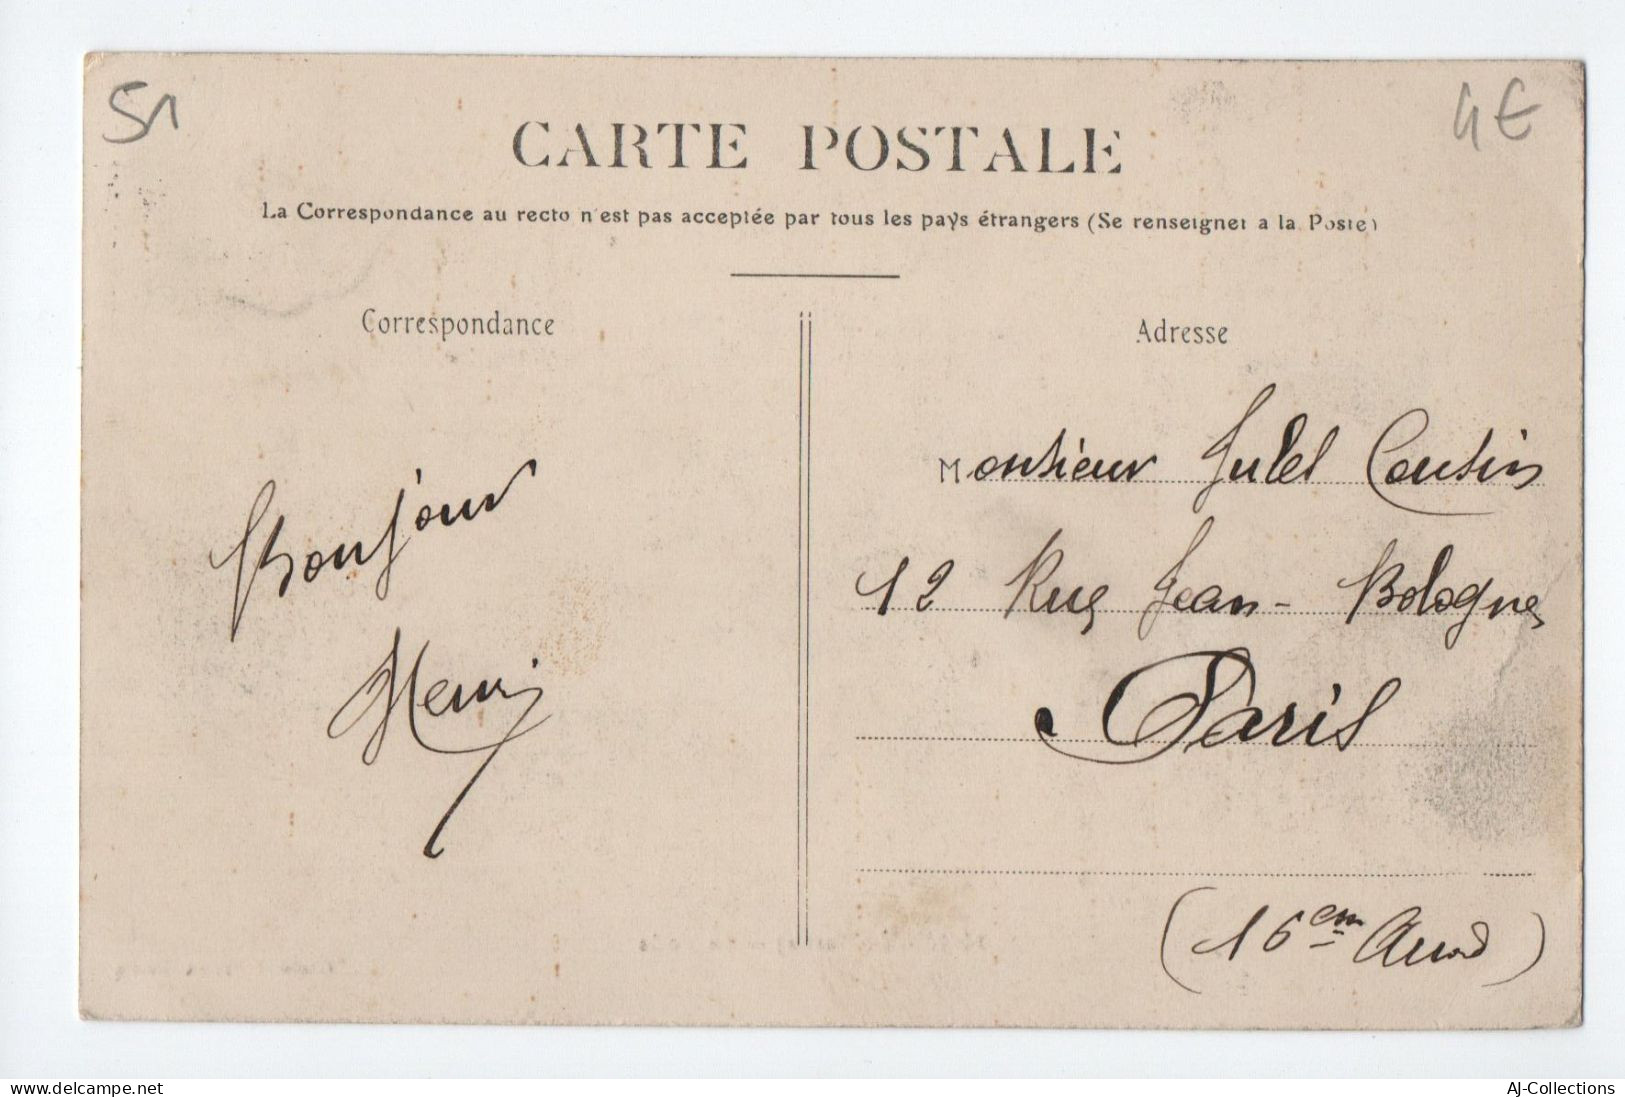 51
4€
CARTE POSTALE
La Correspondance au recto n'est pas acceptée par tous les pays étrangers (Se renseigner a la Poste)
Correspondance
Bonjour
Henri
Adresse
Monsieur Jules Cousin
12 Rue Jean-Bologne
Paris
(16em Arrd)
www.delcampe.net
AJ-Collections